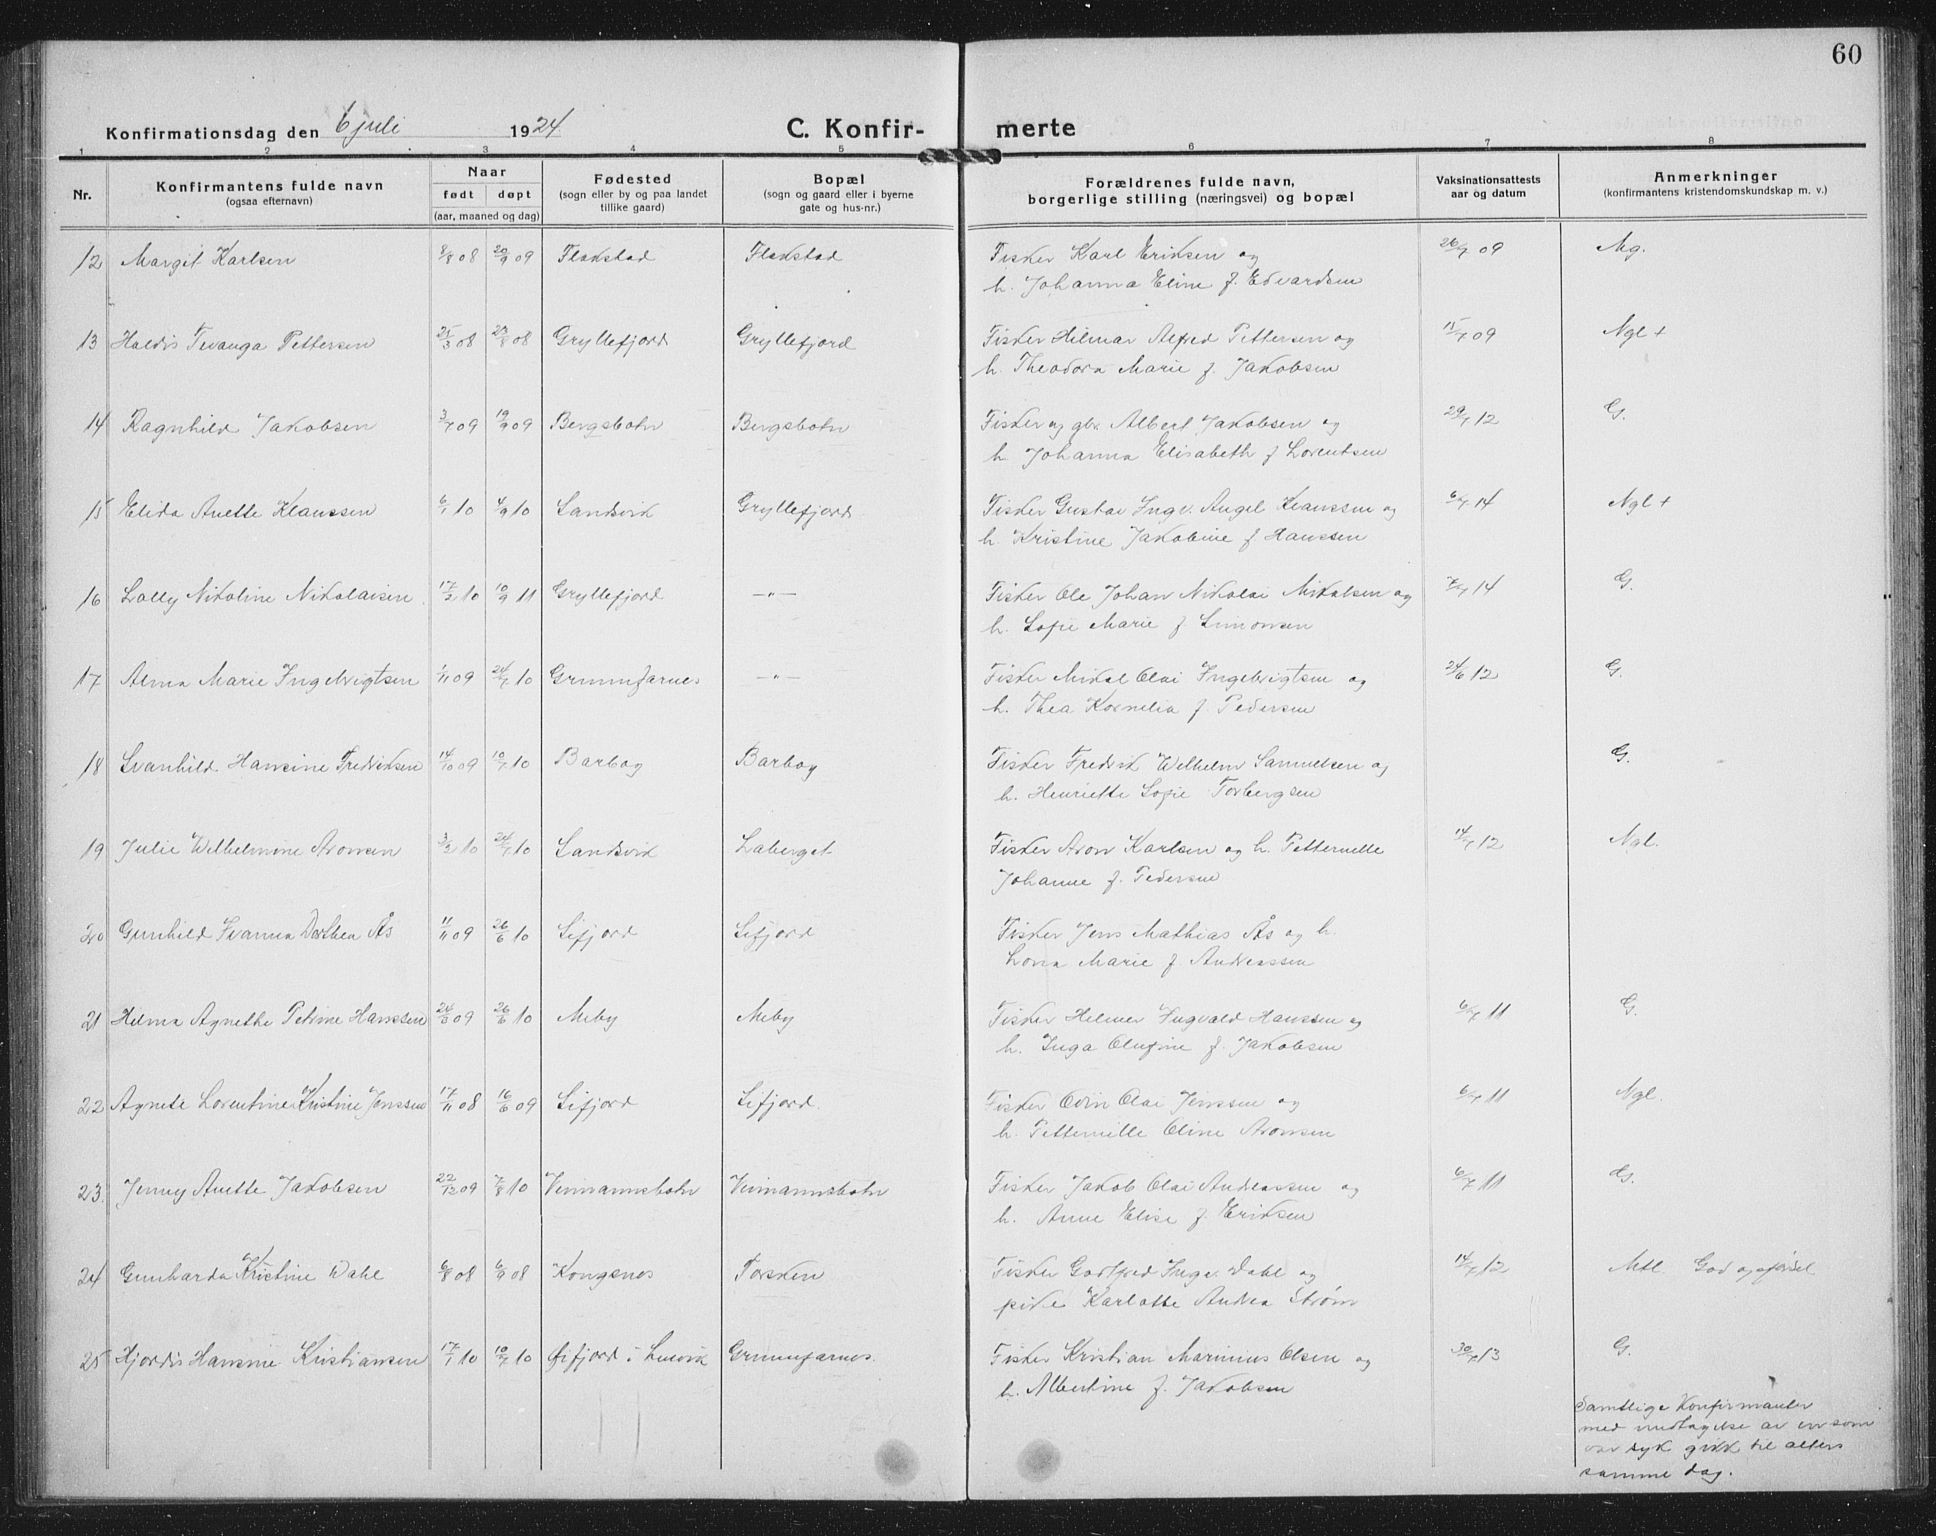 60
Konfirmationsdag den 6 juli 1924 C. Konfir- merte
1 2 3 4 5 6 7 8
Nr. Konfirmantens fulde navn (ogsaa efternavn) Naar født døpt (aar, maaned og dag) Fødested (sogn eller by og paa landet tillike gaard) Bopæl (sogn og gaard eller i byerne gate og hus-nr.) Forældrenes fulde navn, borgerlige stilling (næringsvei) og bopæl Vaksinationsattests aar og datum Anmerkninger (konfirmantens kristendomskundskap m. v.)
12 Margit Karlsen 8/8 08 20/9 09 Flakstad Flakstad Fisker Karl Eriksen og 26/7 09 Mg.
h. Johanna Eline f. Edvardsen
13 Haldis Pettersen 25/3 08 08 Gryllefjord Gryllefjord Fisker Hilmar Alfred Pettersen og 15/7 09 Ngl +
h. Theodora Marie f. Jakobsen
14 Ragnhild Jakobsen 3/7 09 19/9 09 Bergsbotn Bergsbotn Fisker og gbr. Albert Jakobsen og 29/7 12 G.
h. Johanna Elisabeth f Lorentsen
15 Elida Anette Klaussen 6/1 10 4/9 10 Sandvik Gryllefjord Fisker Gustav Ingv. Angel Klaussen og 6/7 14 Ngl +
h. Kristine Jakobine f Hanssen
16 Lolly Nikoline Nikolaisen 17/2 10 10/9 11 Gryllefjord —"— Fisker Ole Johan Nikolai Nikolaisen og 7/7 14 G.
h. Sofie Marie f. Simonsen
17 Alma Marie Ingebrigtsen 1/11 09 24/7 10 Grunnfarnes —"— Fisker Mikal Olai Ingebrigtsen og 24/6 12 G.
h. Thea Kornelia f. Pedersen
18 Svanhild Hansine Fredriksen 14/10 09 10/7 10 Barbog Barbog Fisker Fredrik Wilhelm Samuelsen og G.
h. Henriette Sofie Torbergsen
19 Julie Wilhelmine Aronsen 3/3 10 24/7 10 Sandvik Laberget Fisker Aron Karlsen og h. Petternelle 14/7 12 Ngl.
Johanne f. Pedersen
20 Gunhild Ivanna Dorthea Ås 11/11 09 26/6 10 Sifjord Sifjord Fisker Jens Mathias Ås og h.
Lova Marie f. Andreassen
21 Hilma Agnethe Petrine Hanssen 24/3 09 26/6 10 Meby Meby Fisker Helmer Ingvald Hanssen og 6/7 11 G.
h. Inga Olufine f. Jakobsen
22 Agnete Lorentine Kristine Jenssen 17/11 08 16/6 09 Sifjord Sifjord. Fisker Odin Olai Jenssen og 6/7 11 Ngl.
h. Petternille Oline Aronsen
23. Jenny Anette Jakobsen 22/12 09 7/8 10 Veimannsbotn Veimannsbotn Fisker Jakob Olai Andreassen og 6/7 11 G.
h. Anne Elise f. Eriksen
24 Gunharda Kristine Dahl 6/8 08 6/9 08 Kongsnes Torsken Fisker Gottfred Ingv. Dahl og 14/7 12 Mtl. God opførsel
pike Karlotte Andrea Strøm
25 Hjørdis Hansine Kristiansen 17/1 10 10/7 10 Øifjord i Lenvik Grunnfarnes. Fisker Kristian Marinius Olsen og 30/7 13 G.
h. Albertine f. Jakobsen
Samtlige Konfirmanter
med undtagelse av en som
var syk gikk til alters
samme dag.